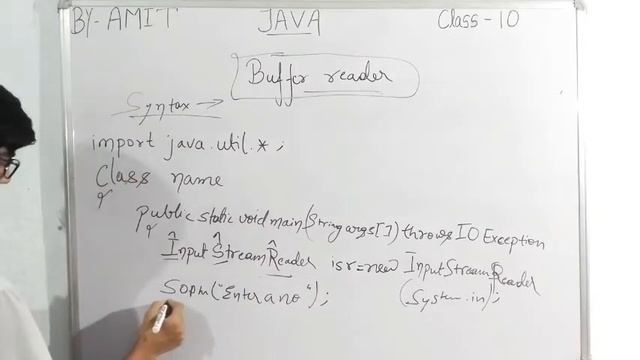 BY- AMIT JAVA Class - 10
Buffer reader
Syntax →
import java.util.*;
Class name
{
public static void main(String args[]) throws IOException
{
InputStreamReader isr=new InputStreamReader
(System.in);
Sopln("Enter a no");